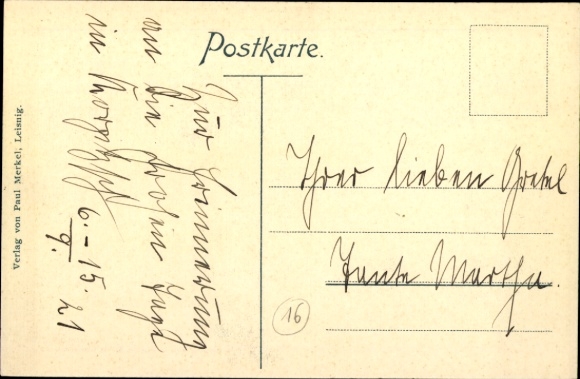 Postkarte.
Zur Erinnerung
an die schönen Tage
in
6.-15. 21
9.
Ihrer lieben Gretel
Tante Martha.
16
Verlag von Paul Merkel, Leisnig.